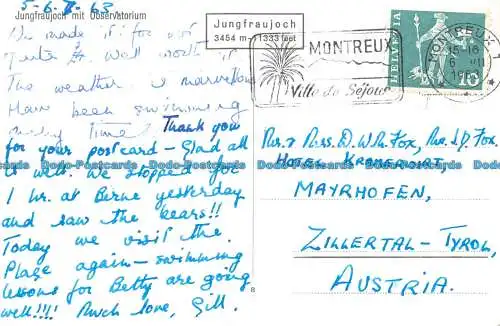 5-6-7-63
Jungfraujoch mit Observatorium
We made it for
Well worth it
The weather is marvellous
Have been swimming
every time! Thank you
for your postcard - Glad all
is well. We stopped for
1 hr. at Berne yesterday
and saw the bears!!
Today we visit the
Plage again - swimming
lessons for Betty are going
well!!!! Much love, Gill.
Jungfraujoch
3454 m - 11333 feet
MONTREUX
Ville de Séjour
HELVETIA
10
MONTREUX 1
15-16
6. VII
Mr. & Mrs. D. W. Fox, J. D. Fox
HOTEL KRAMERWIRT,
MAYRHOFEN,
ZILLERTAL - TYROL,
AUSTRIA.
8
Dodo-Postcards Dodo-Postcards Dodo-Postcards Dodo-Postcards